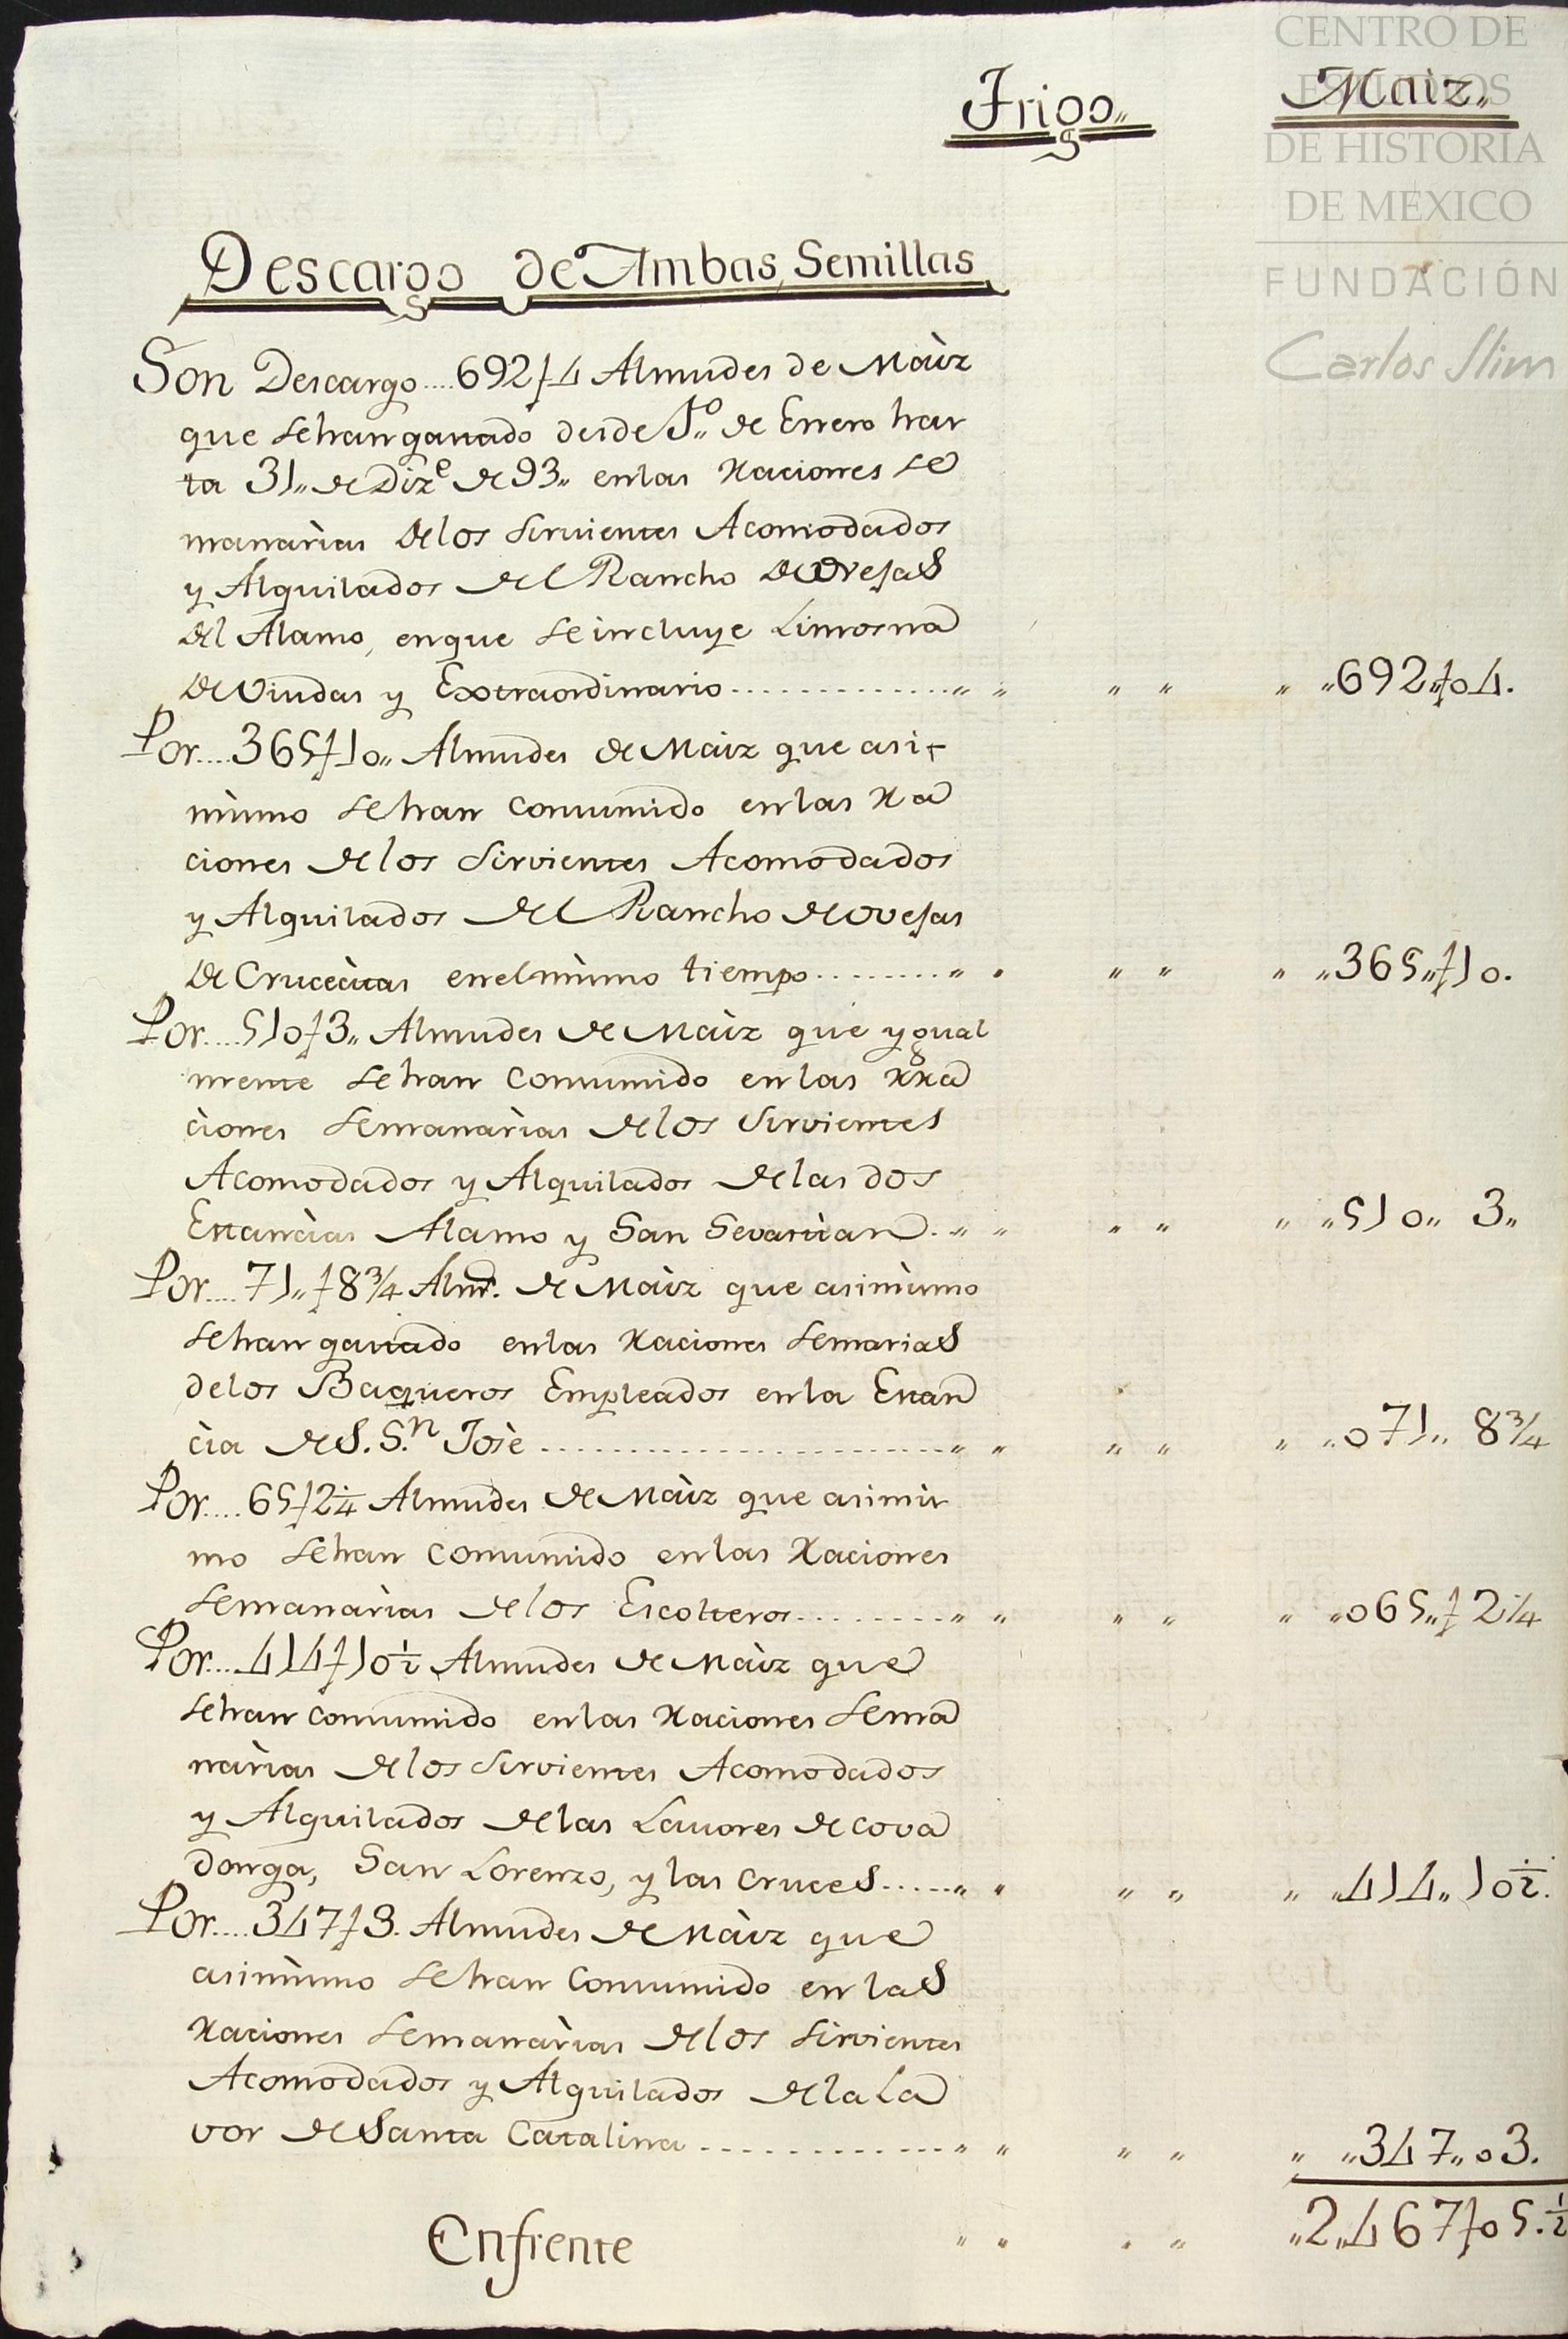 CENTRO DE
ESTUDIOS
DE HISTORIA
DE MEXICO
FUNDACIÓN
Carlos Slim
Trigo,, Maiz,,
Descargo de Ambas Semillas
Son Descargo....692f4 Almudes de Maìz
que sehan gastado desde 1º,, de Enero has
ta 31,, de Dizᵉ de 93,, enlas Raciones se
manarìas delos Sirvientes Acomodados
y Alquilados del Rancho de Ovejas
del Alamo, enque se incluye Limosna
de Viudas y Extraordinario.............. ,, ,, ,, ,, ,, ,,692,,f04.
Por....365f10,, Almudes de Maìz que asi-
mìsmo sehan Consumido enlas Ra
ciones delos Sirvientes Acomodados
y Alquilados del Rancho de ovejas
de Crucecìtas enelmìsmo tiempo......... ,, ,, ,, ,, ,, ,,365,,f10.
Por....510f3,, Almudes de Maìz que ygual
mente sehan Consumido enlas rra
cìones semanarìas delos Sirvientes
Acomodados y Alquilados delas dos
Estancìas Alamo y San Sevastìan. ,, ,, ,, ,, ,, ,,510,, 3,,
Por....71,,f8¾ Almˢ. de Maìz que asimìsmo
sehan gastado enlas Raciones semarias
delos Baqueros Empleados enla Estan
cìa de S. S.ⁿ Josè ...................... ,, ,, ,, ,, ,, ,,071,, 8¾
Por....65f2¼ Almudes de Maìz que asimis
mo sehan Consumido enlas Raciones
semanarìas delos Escolteros.......... ,, ,, ,, ,, ,, ,,065,,f2¼
Por...414f10½ Almudes de Maìz que
sehan Consumido enlas Raciones sema
narìas delos Sirvientes Acomodados
y Alquilados delas Lavores de Cova
donga, San Lorenzo, y las Cruces...... ,, ,, ,, ,, ,, ,,414,,10½.
Por....347f3. Almudes de Maìz que
asimìsmo sehan Consumido en las
Raciones semanarìas delos Sirvientes
Acomodados y Alquilados dela La
vor de Santa Catalina .............. ,, ,, ,, ,, ,, ,,347,,03.
Enfrente ,, ,, ,, ,, ,,2,,467f05.½